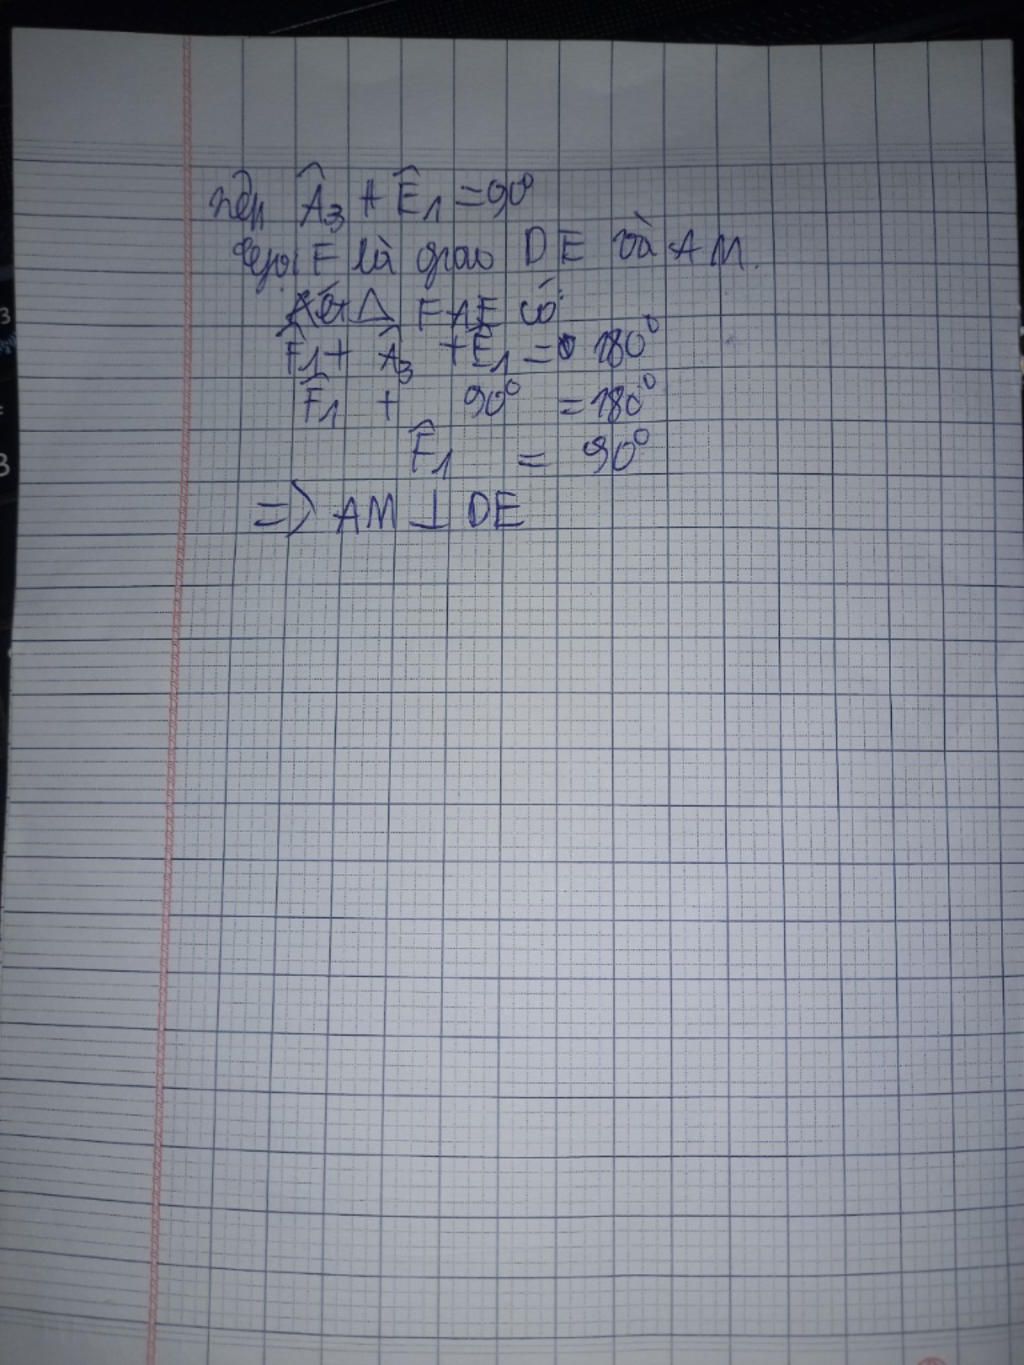 nên Â₃ + Ê₁ = 90⁰
Gọi F là giao DE và AM.
Xét Δ FAE có:
F̂₁ + Â₃ + Ê₁ = 180⁰
F̂₁ + 90⁰ = 180⁰
F̂₁ = 90⁰
=> AM ⊥ DE